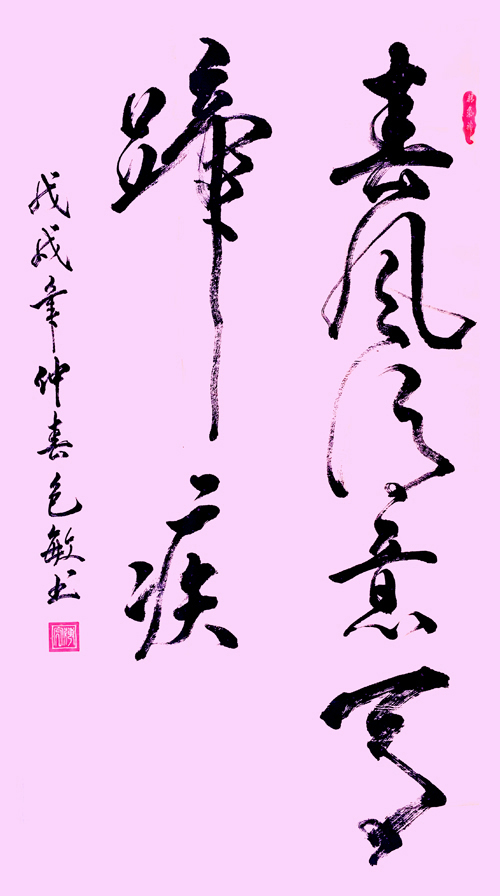 春风得意马
蹄疾
戊戌年仲春色敏书